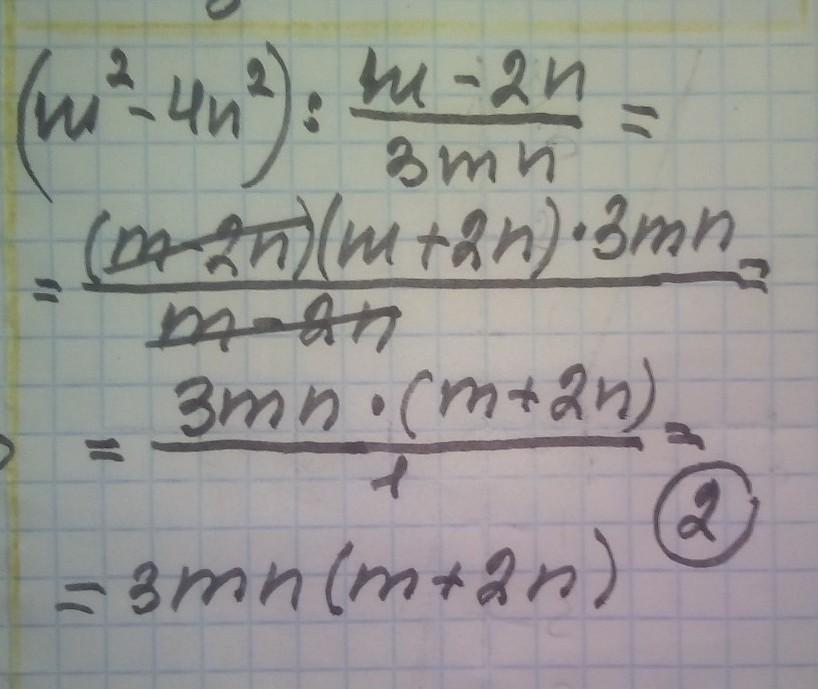 (m² - 4n²) : (m - 2n)/(3mn) =
= ((m - 2n)(m + 2n) · 3mn)/(m - 2n) =
= (3mn · (m + 2n))/1 =
2
= 3mn(m + 2n)